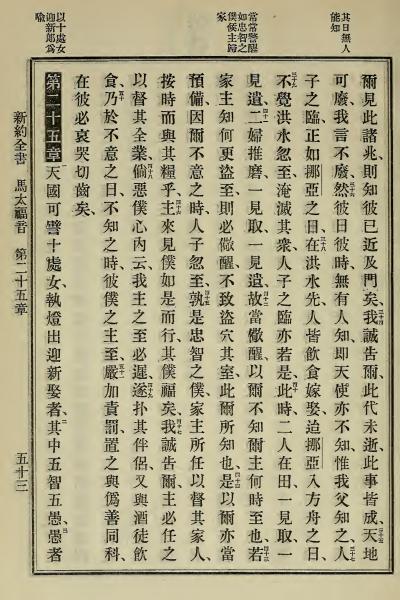 其日無人
能知
常常警醒
如忠之智
僕候主歸
家
以十處女
迎新郎爲
喻
爾見此諸兆、則知彼已近及門矣、三十四我誠告爾、此代未逝、此事皆成、三十五天地
可廢、我言不廢、三十六然彼日彼時、無有人知、卽天使亦不知、惟我父知之、三十七人
子之臨、正如挪亞之日、三十八在洪水先、人皆飲食嫁娶、迨挪亞入方舟之日、
三十九不覺洪水忽至、淹滅其衆、人子之臨亦若是、四十此時二人在田、一見取、一
見遺、四十一二婦推磨、一見取、一見遺、四十二故當儆醒、以爾不知爾主何時至也、四十三若
家主知何更盜至、則必儆醒、不致盜穴其室、此爾所知也、四十四是以爾亦當
預備、因爾不意之時、人子忽至、四十五孰是忠智之僕、家主所任以督其家人、
按時而與其糧乎、四十六主來見僕如是而行、其僕福矣、四十七我誠告爾、主必任之
以督其全業、四十八倘惡僕心內云、我主之至必遲、四十九遂扑其伴侶、又與酒徒飲
食、五十乃於不意之日、不知之時、彼僕之主至、五十一嚴加責罰、置之與僞善同科、
在彼必哀哭切齒矣、
第二十五章 一天國可譬十處女、執燈出迎新娶者、二其中五智五愚、三愚者
新約全書 馬太福音 第二十五章 五十三